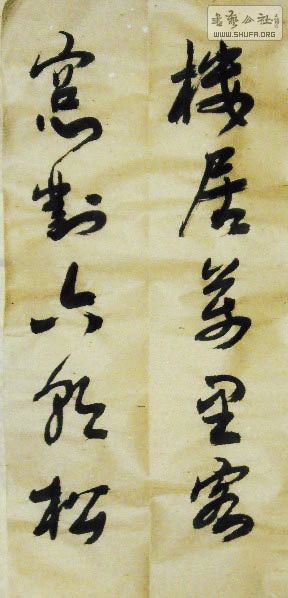 楼居万里客
窓對六朝松
书艺公社
WWW.SHUFA.ORG